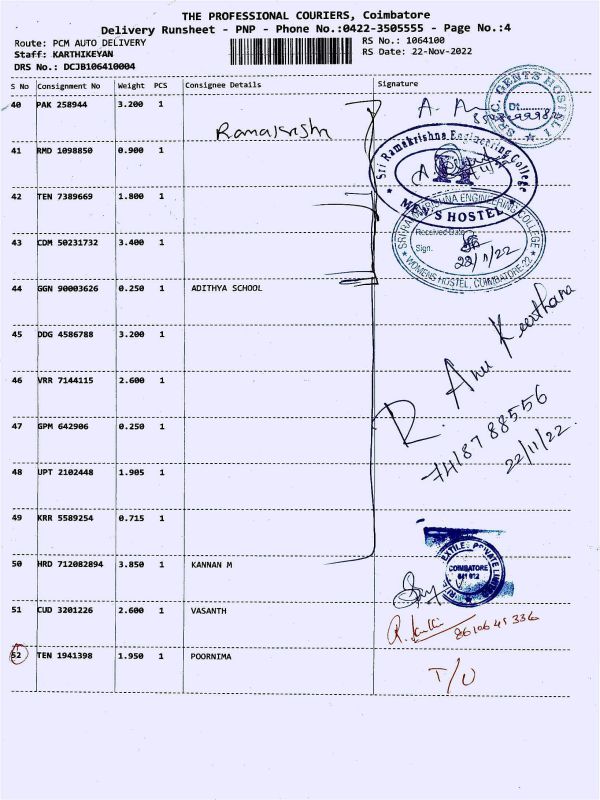 THE PROFESSIONAL COURIERS, Coimbatore
Delivery Runsheet - PNP - Phone No.:0422-3505555 - Page No.:4
Route: PCM AUTO DELIVERY
RS No.: 1064100
Staff: KARTHIKEYAN
RS Date: 22-Nov-2022
DRS No.: DCJB106410004
S No Consignment No Weight PCS Consignee Details Signature
40 PAK 258944 3.200 1
Ramakrishn
41 RMD 1098850 0.900 1
Sri Ramakrishna Engineering College
MEN'S HOSTEL
42 TEN 7389669 1.800 1
SRI RAMAKRISHNA ENGINEERING COLLEGE
Received Date
43 CDM 50231732 3.400 1
Sign.
22/11/22
WOMENS HOSTEL, COIMBATORE-22
44 GGN 90003626 0.250 1 ADITHYA SCHOOL
45 DDG 4586788 3.200 1
46 VRR 7144115 2.600 1
R. Anu Keerthana
47 GPM 642906 0.250 1
7418788556
22/11/22.
48 UPT 2102448 1.905 1
49 KRR 5589254 0.715 1
50 HRD 712082894 3.850 1 KANNAN M
PRIVATE
COIMBATORE
641 012
51 CUD 3201226 2.600 1 VASANTH
52 TEN 1941398 1.950 1 POORNIMA
T/U